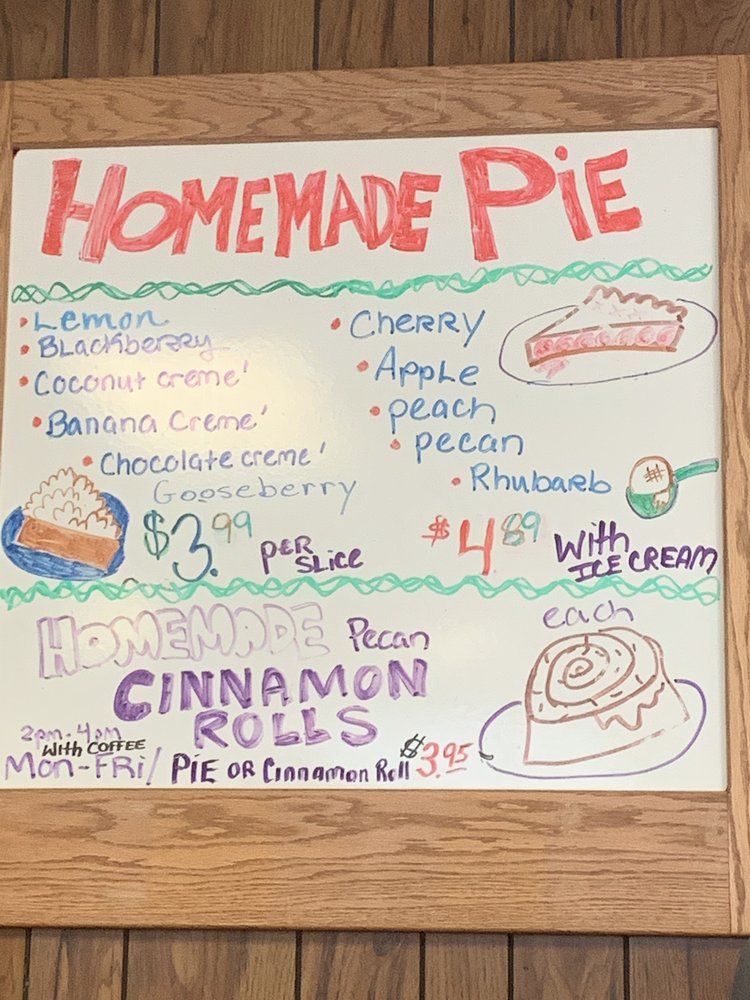 HOMEMADE PiE
• Lemon
• BLackbeRRy
• Coconut creme'
• Banana Creme'
• Chocolate creme'
Gooseberry
• CHeRRY
• Apple
• peach
• pecan
• Rhubarb
$3.99 peR SLice
$4.89 With ICE CREAM
HOMEMADE Pecan
CINNAMON
ROLLS
each
2pm-4pm
With COFFEE
Mon-FRi/ PiE OR Cinnamon Roll $3.95